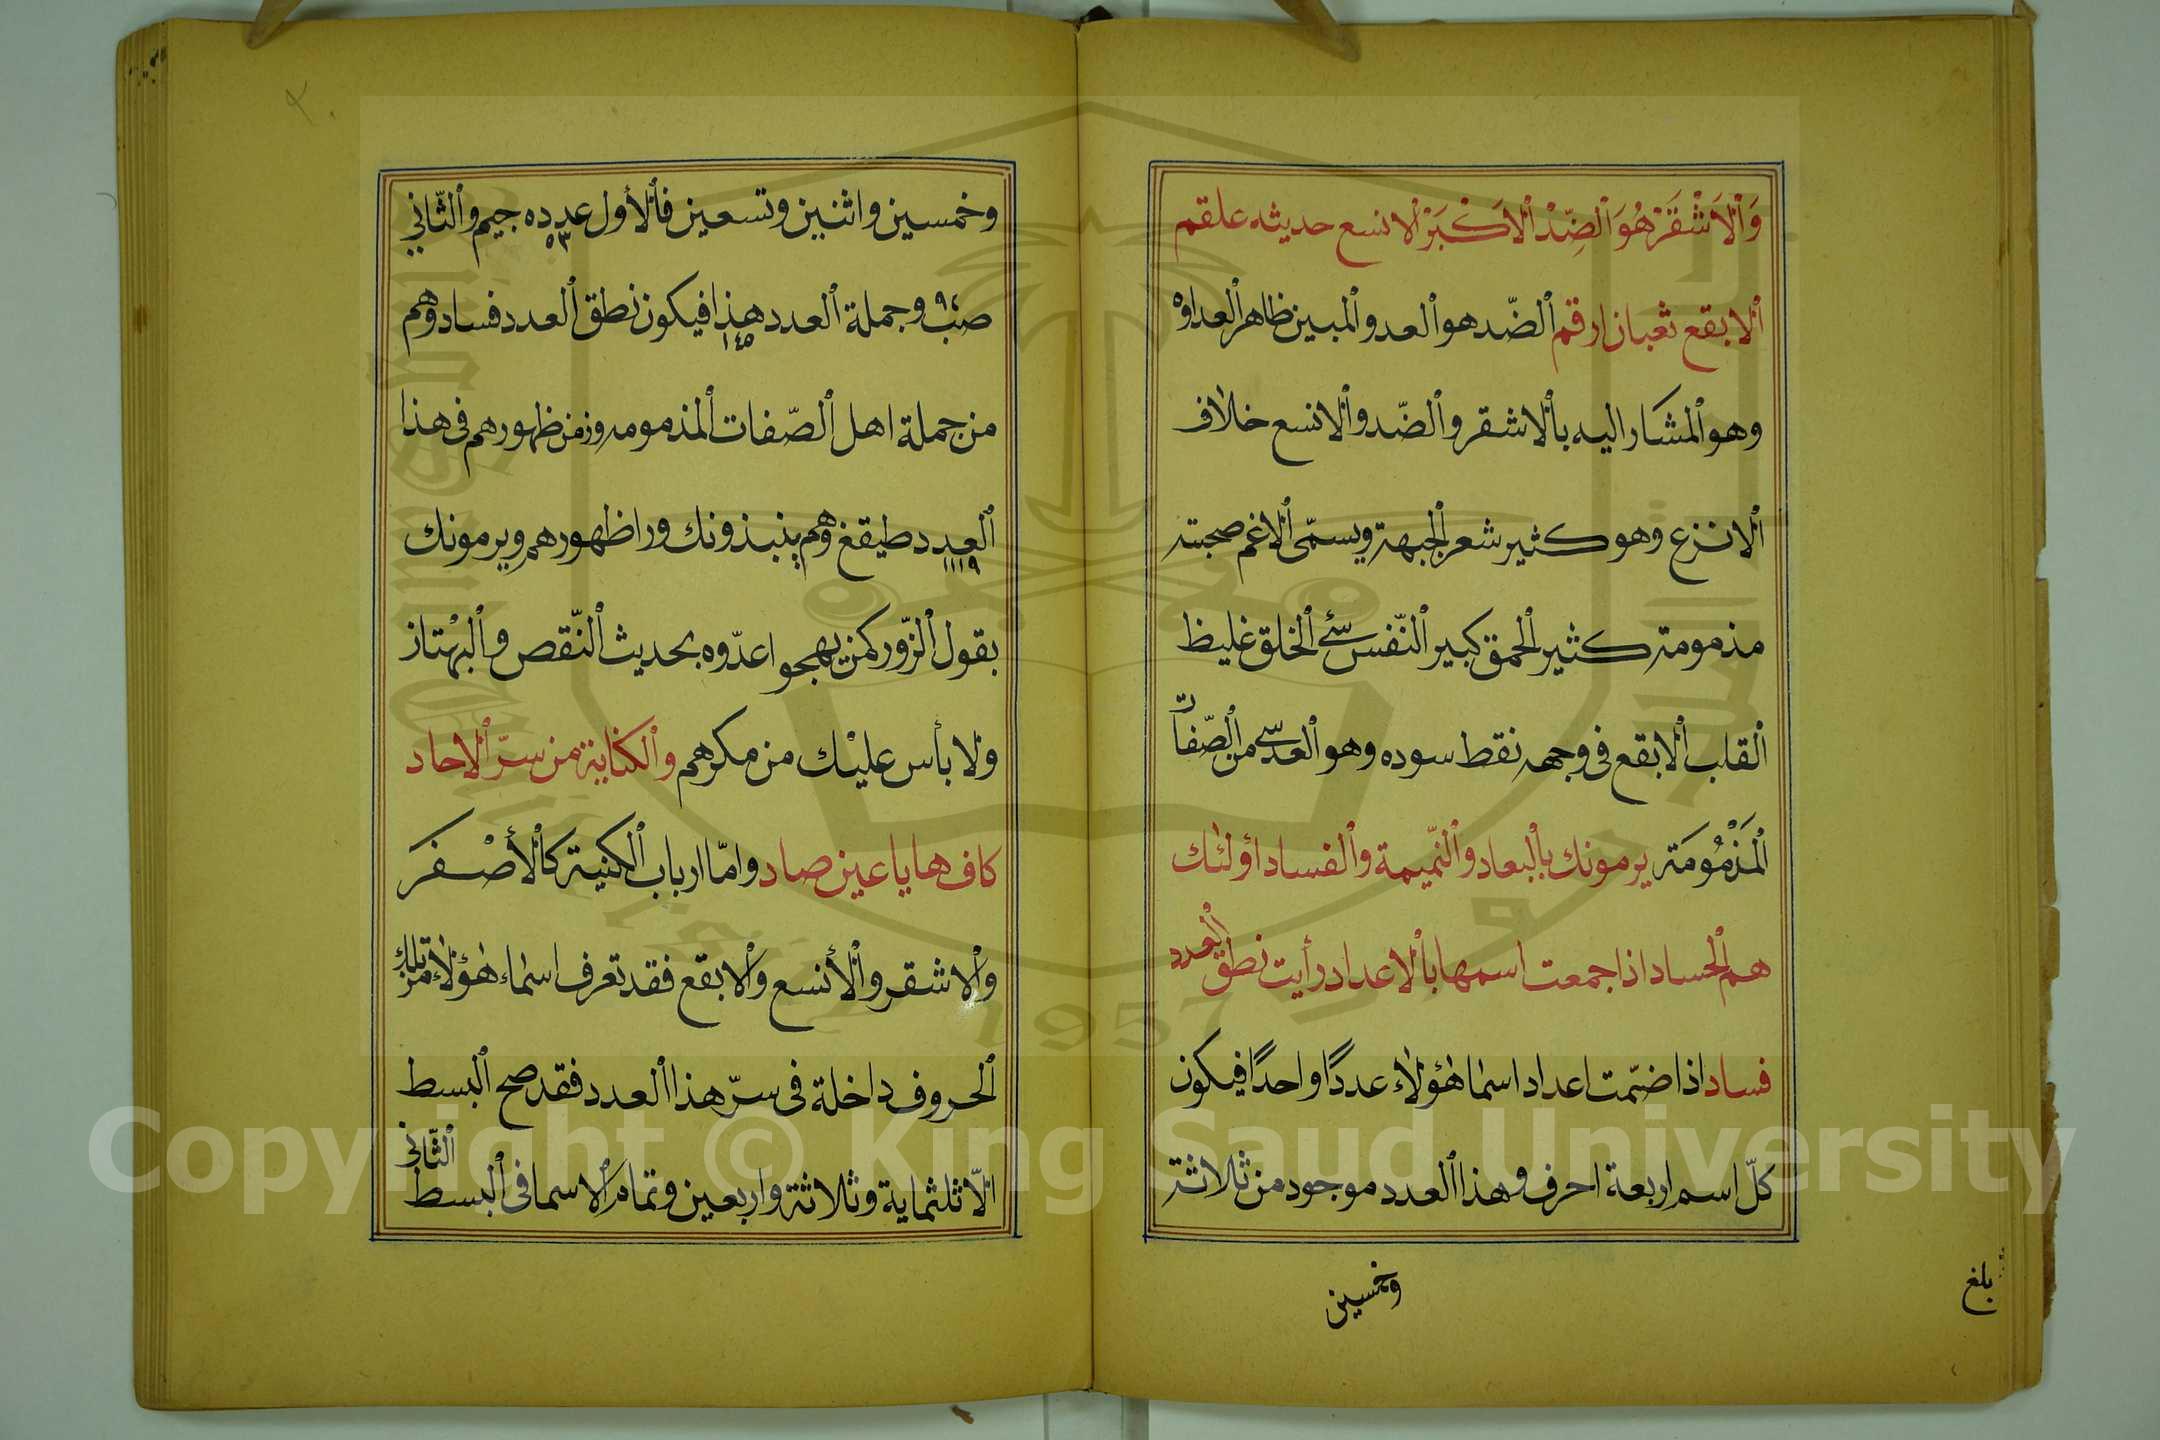 وَٱلْاَشْقَرْ هُوَ ٱلضِّدْ ٱلاَكْبَرْ الانسع حديثه علقم
ٱلابقع ثعبان ارقم ٱلضّد هو العدو ٱلمبين ظاهر ٱلعداوه
وهو ٱلمشار اليه بٱلاشقر وٱلضّد وٱلانسع خلاف
ٱلانزع وهو كثير شعر ٱلجبهة ويسمّى ٱلاغم صحبته
مذمومة كثير ٱلحمق كبير ٱلنّفس سئ ٱلخلق غليظ
ٱلقلب ٱلابقع فى وجهه نقط سوده وهو ٱلعدسى من ٱلصّفات
ٱلْمَذْمُومَة يرمونك بٱلبعاد وٱلنّميمة وٱلفساد اولئك
هم ٱلحساد اذا جمعت اسمها بٱلاعداد رأيت نطق ٱلعدد
فساد اذا ضمّت اعداد اسما هؤلاء عددًا واحدًا فيكون
كلّ اسم اربعة احرف وهذا ٱلعدد موجود من ثلاثة
وخمسين
بلغ
وخمسين واثنين وتسعين فٱلأول عدده جيم وٱلثّاني
٥٣
صب ٩٢ وجملة ٱلعدد هذا فيكون نطق ٱلعدد فساد وهم
١٤٥
من جملة اهل ٱلصّفات ٱلمذمومه وزمن ظهورهم فى هذا
ٱلعدد طيقغ وهم ينبذونك ورا ظهورهم ويرمونك
١١١٩
بقول ٱلزّور كمن يهجوا عدّوه بحديث ٱلنّقص وٱلبهْتان
ولا بأس عليْك من مكرهم وٱلكناية من سرّ ٱلاحاد
كاف ها يا عين صاد وامّا ارباب ٱلكنية كٱلأصْفر
وٱلاشقر وٱلأنسع وٱلابقع فقد تعرف اسماء هؤلاء من تلك
ٱلحروف داخلة فى سرّ هذا ٱلعدد فقد صح ٱلبسط
الّا ثلثماية وثلاثة واربعين وتمام ٱلاسما فى ٱلبسط ٱلثّانى
Copyright © King Saud University
1957